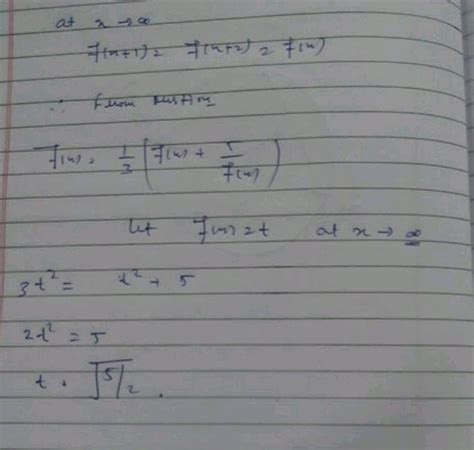 at x → ∞
F(x+1) = F(x+2) = F(x)
∴ From
F(x) = 1/3 (F(x) + 5/F(x))
let F(x) = t at x → ∞
3t² = t² + 5
2t² = 5
t = √5/2.